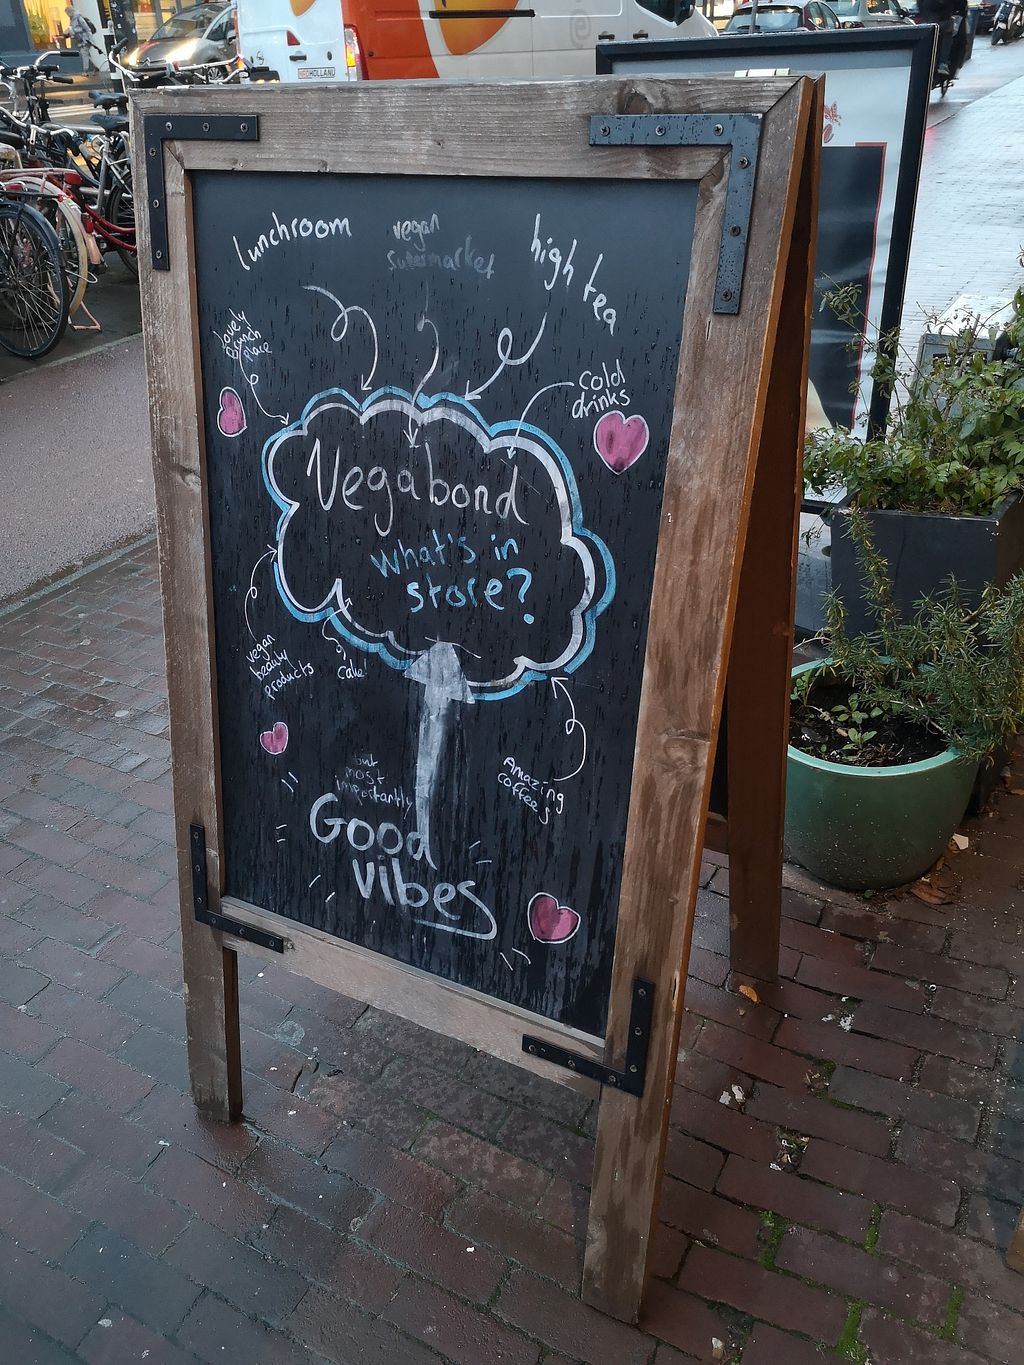 lunchroom
vegan
supermarket
high tea
lovely
lunch
place
cold
drinks
Vegabond
What's in
store?
vegan
beauty
products
Cake!
but
most
importantly
Amazing
coffee
Good
vibes
HOLLAND